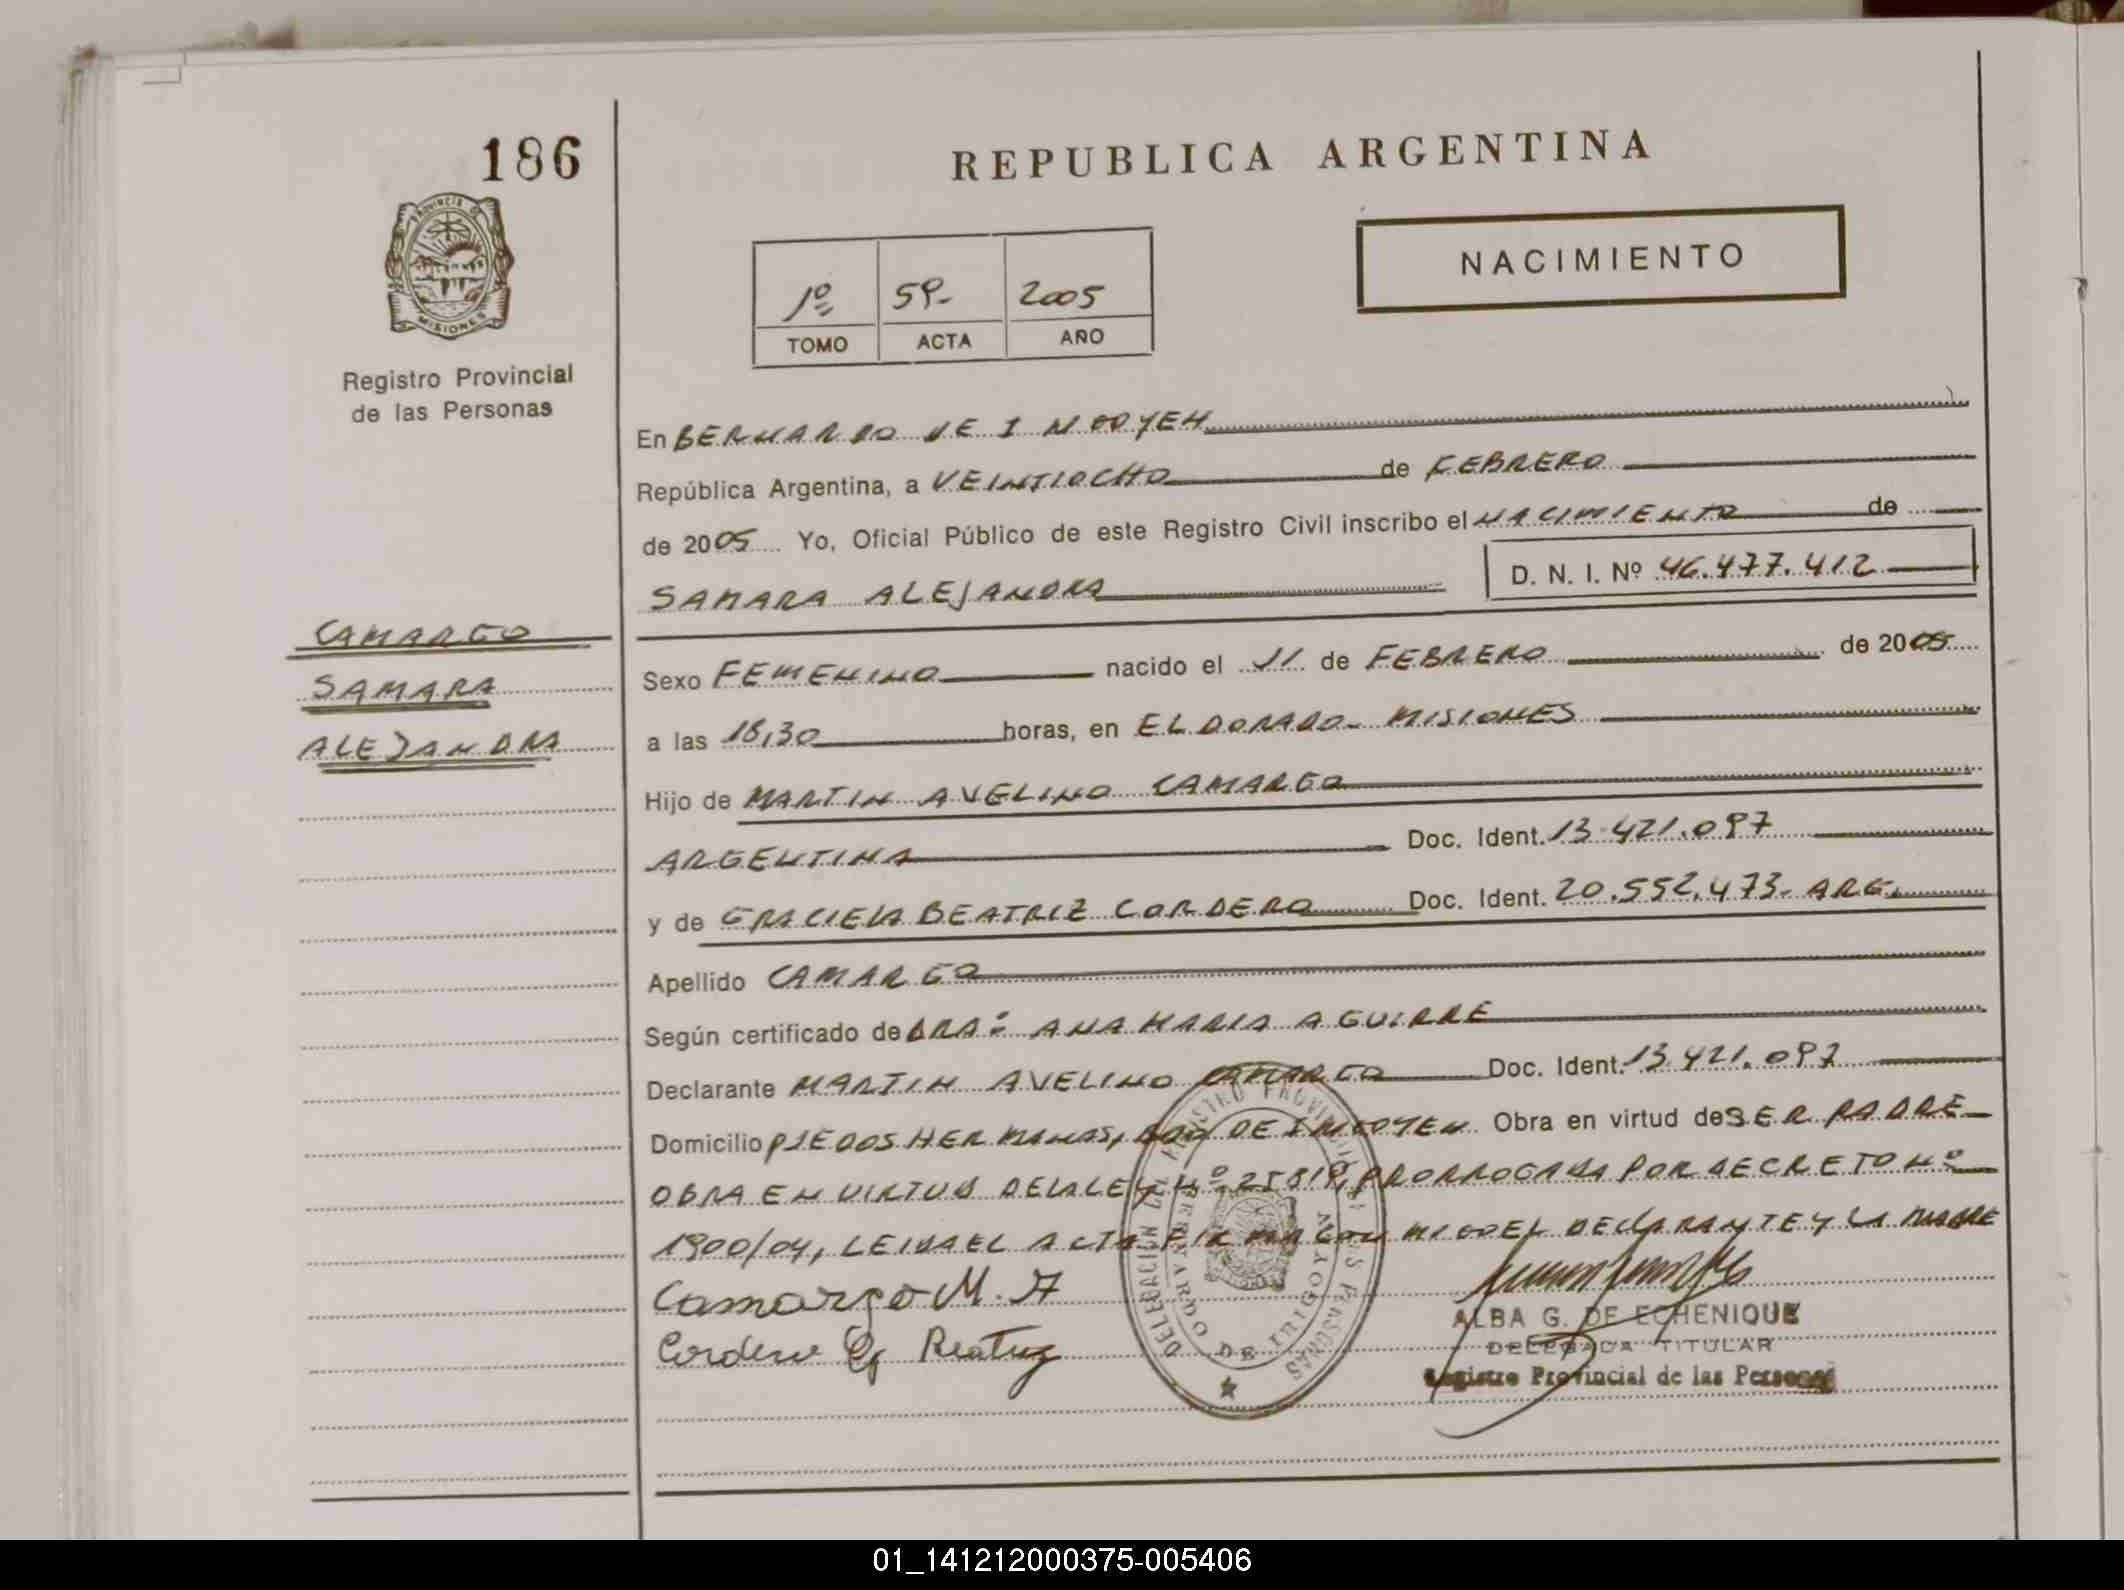 186
REPUBLICA ARGENTINA
PROVINCIA DE
MISIONES
NACIMIENTO
1º 59- 2005
TOMO ACTA AÑO
Registro Provincial
de las Personas
En BERNARDO DE IRIGOYEN
República Argentina, a VEINTIOCHO de FEBRERO
de 2005 Yo, Oficial Público de este Registro Civil inscribo el NACIMIENTO de
SAMARA ALEJANDRA D. N. I. Nº 46.477.412
CAMARGO
SAMARA
ALEJANDRA
Sexo FEMENINO nacido el 11 de FEBRERO de 2005
a las 18,30 horas, en ELDORADO- MISIONES
Hijo de MARTIN AVELINO CAMARGO
ARGENTINA Doc. Ident. 13.421.097
y de GRACIELA BEATRIZ CORDERO Doc. Ident. 20.552.473- ARG.
Apellido CAMARGO
Según certificado de DRA: ANA MARIA AGUIRRE
Declarante MARTIN AVELINO CAMARGO Doc. Ident. 13.421.097
Domicilio PJE DOS HERMANAS, BDO DE IRIGOYEN Obra en virtud de SER PADRE
OBRA EN VIRTUD DE LA LEY Nº 25819, PRORROGADA POR DECRETO Nº
1900/04, LEIDA EL ACTA FIRMAN CONMIGO EL DECLARANTE Y LA MADRE
Camargo M. A
Cordero G Beatriz
DELEGACIÓN DEL REGISTRO PROVINCIAL DE LAS PERSONAS
BERNARDO DE IRIGOYEN
ALBA G. DE ECHENIQUE
DELEGADA TITULAR
Registro Provincial de las Personas
01_141212000375-005406